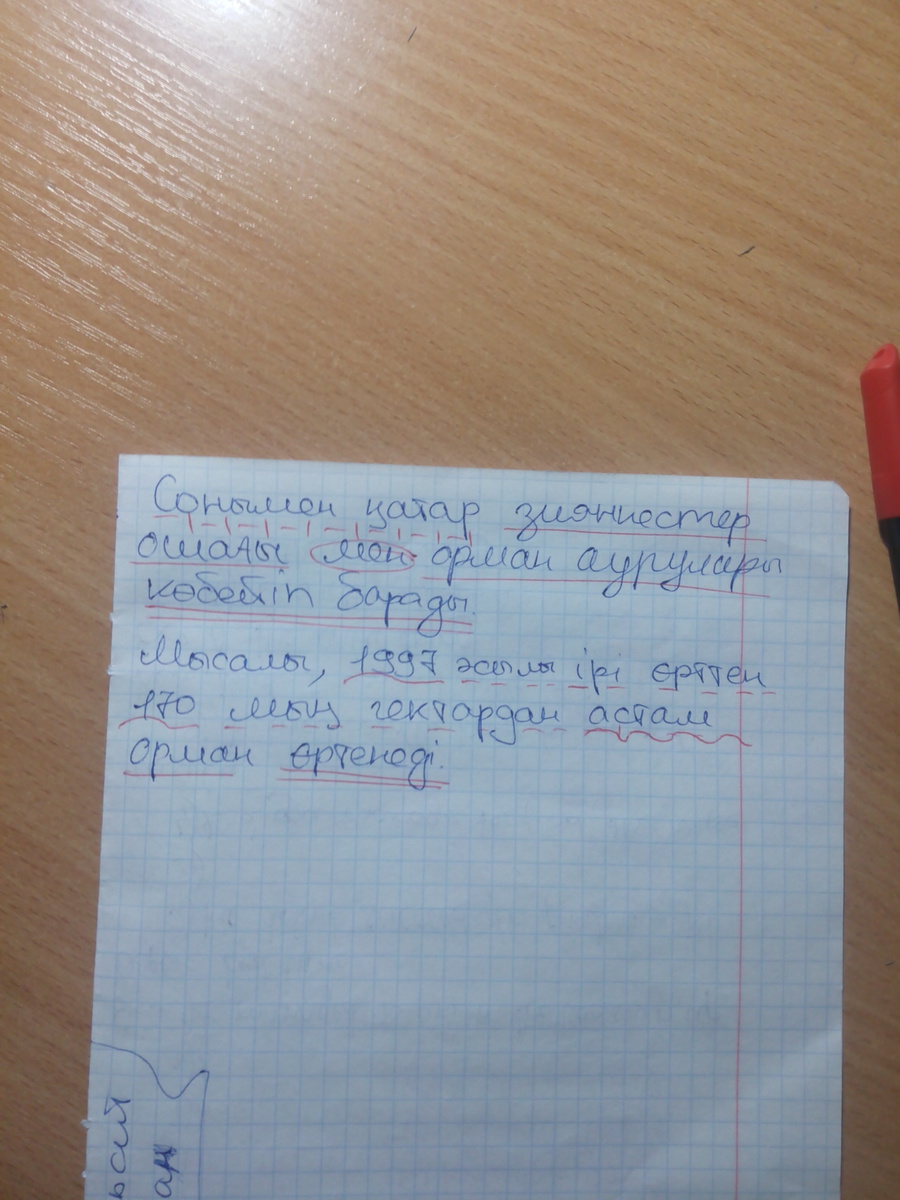 Сонымен қатар зиянкестер
ошағы мен орман аурулары
көбейіп барады.
Мысалы, 1997 жылы ірі өрттен
170 мың гектардан астам
орман өртенеді.
ан